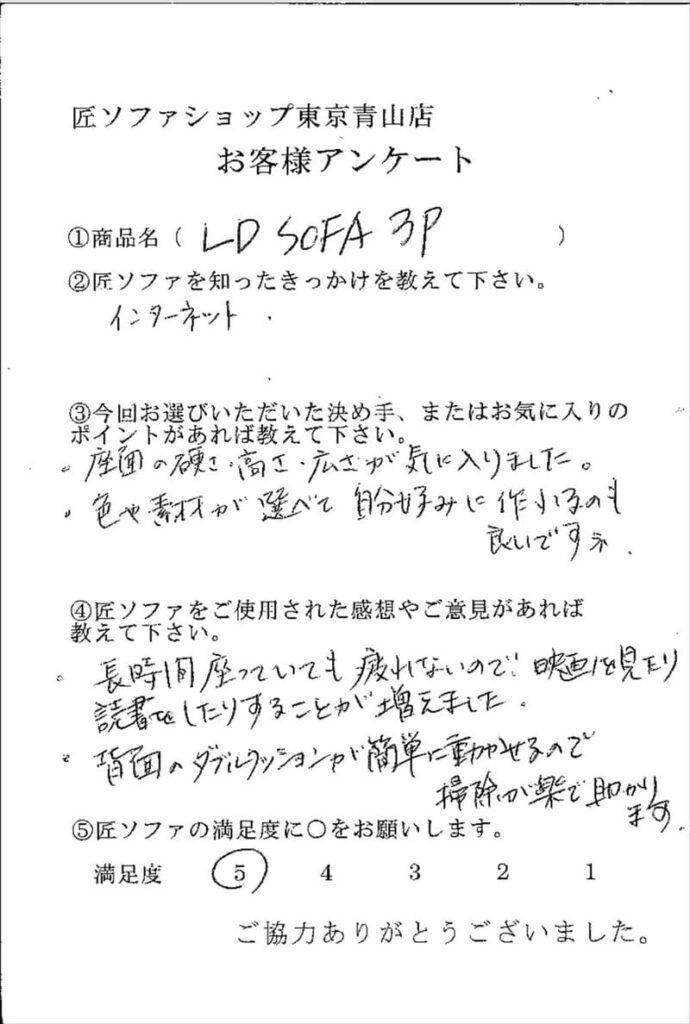 匠ソファショップ東京青山店
お客様アンケート
①商品名（ LD SOFA 3P ）
②匠ソファを知ったきっかけを教えて下さい。
インターネット.
③今回お選びいただいた決め手、またはお気に入りの
ポイントがあれば教えて下さい。
。座面の硬さ・高さ・広さが気に入りました。
・色や素材が選べて自分好みに作れるのも
良いですネ.
④匠ソファをご使用された感想やご意見があれば
教えて下さい。
。長時間座っていても疲れないので、映画を見たり
読書をしたりすることが増えました.
・背面のダブルクッションが簡単に動かせるので
掃除が楽で助かり
ます。
⑤匠ソファの満足度に〇をお願いします。
満足度 5 4 3 2 1
ご協力ありがとうございました。